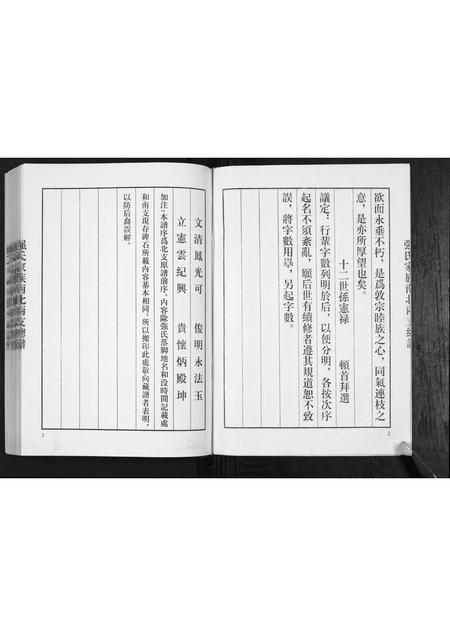 欲而永垂不朽，是爲敦宗睦族之心，同氣連枝之
意，是亦所厚望也矣。
十二世孫憲禄　頓首拜選
議定：行輩字數列明於后，以便分明，各按次序
起名不須紊亂，願后世有續修者遵其規道恕不致
誤，將字數用畢，另起字數。
2
文清鳳光可　俊明永法玉
立憲雲紀興　貴懷炳殿坤
加注：本譜序爲北支原譜前序，内容除强氏落脚地名和没時間記載處
和南支現存碑石所載内容基本相同，所以搬印此處敬向藏譜者表明，
以防后裔誤解。
强氏家族南北兩支總譜
3